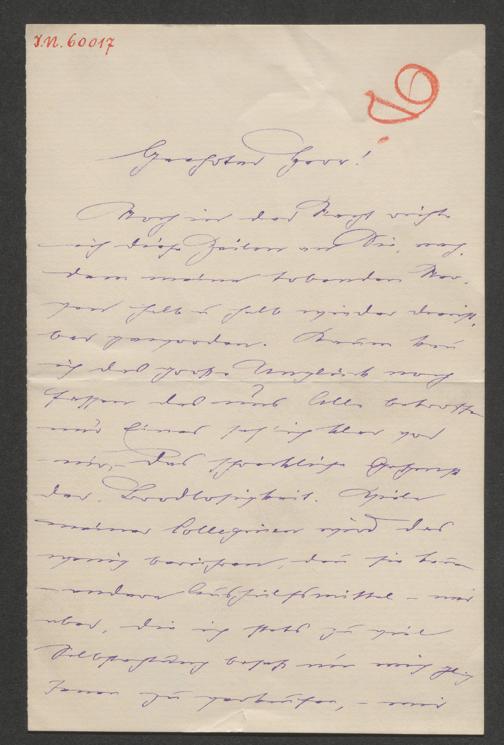 I.N. 60017
Geehrter Herr!
Noch in der Nacht richte
ich diese Zeilen an Sie, nach
dem meine tobenden Ner-
ven halb u halb wieder
bar geworden. Kaum kan
ich das große Unglück noch
fassen das uns Alle betroffen
nur Eines seh' ich klar vor
mir, – das schreckliche Gespenst
der Brodlosigkeit. Viele
meiner Colleginen wird das
wenig berühren, den sie haben
andere Aushilfsmittel – mir
aber, die ich stets zu viel
Selbstachtung besaß um mich
Jenen zu verkaufen, – mir